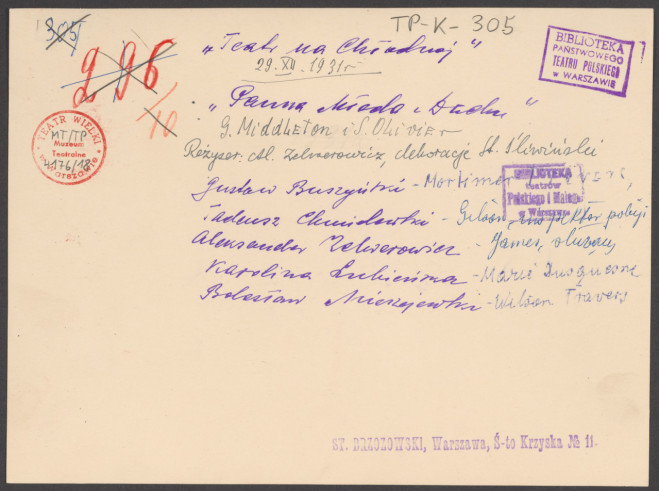 305
TP-K-305
296
/10
BIBLIOTEKA
PAŃSTWOWEGO
TEATRU POLSKIEGO
w WARSZAWIE
TEATR WIELKI
w Warszawie
MT/TP
Muzeum
Teatralne
4176/18
„Teatr na Chłodnej"
29.XII.1931r
„Panna Młoda i Duchy"
G. Middleton i S. Olivier
Reżyser. Al. Zelwerowicz, dekoracje St. Śliwiński
BIBLIOTEKA
teatrów
Polskiego i Małego
w Warszawie
Gustaw Buszyński - Mortimer
Tadeusz Chmielewski - Gibson, inspektor policji
Aleksander Zelwerowicz - James, służący
Karolina Lubieńska - Marie Duquesne
Bolesław Mierzejewski - Wilson Travers
ST. BRZOZOWSKI, Warszawa, Ś-to Krzyska № 11.